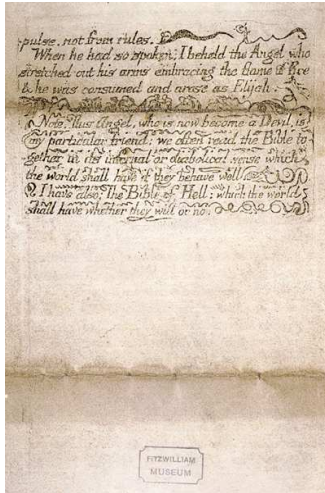 pulse, not from rules.
When he had so spoken: I beheld the Angel who
stretched out his arms embracing the flame of fire
& he was consumed and arose as Elijah.
Note. This Angel, who is now become a Devil, is
my particular friend: we often read the Bible to-
gether in its infernal or diabolical sense which
the world shall have if they behave well
I have also: The Bible of Hell: which the world
shall have whether they will or no.
FITZWILLIAM
MUSEUM